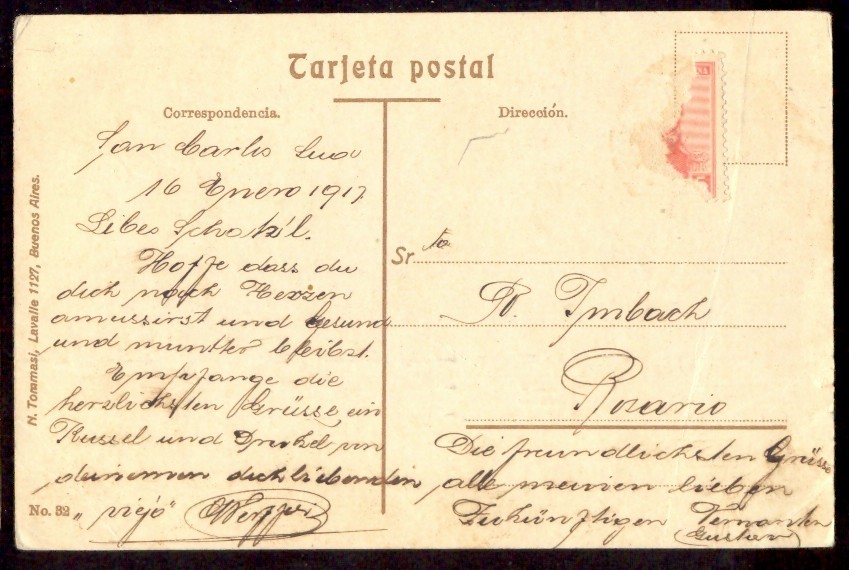 Tarjeta postal
Correspondencia.
San Carlos Sud
16 Enero 1917
Libes Schatz'l.
Hoffe dass du
dich nach Herzen
amussirst und Gesund
und munter bleibst.
Empfange die
herzlichsten Grüsse ein
Kussel und Druckel von
deinemen dich liebenden
"viejo"
No. 32
N. Tommasi, Lavalle 1127, Buenos Aires.
Dirección.
Sr ta
R. Imbach
Rosario
Die freundlichsten Grüsse
alle meinen lieben
Zukünftigen Verwanten
Gustav